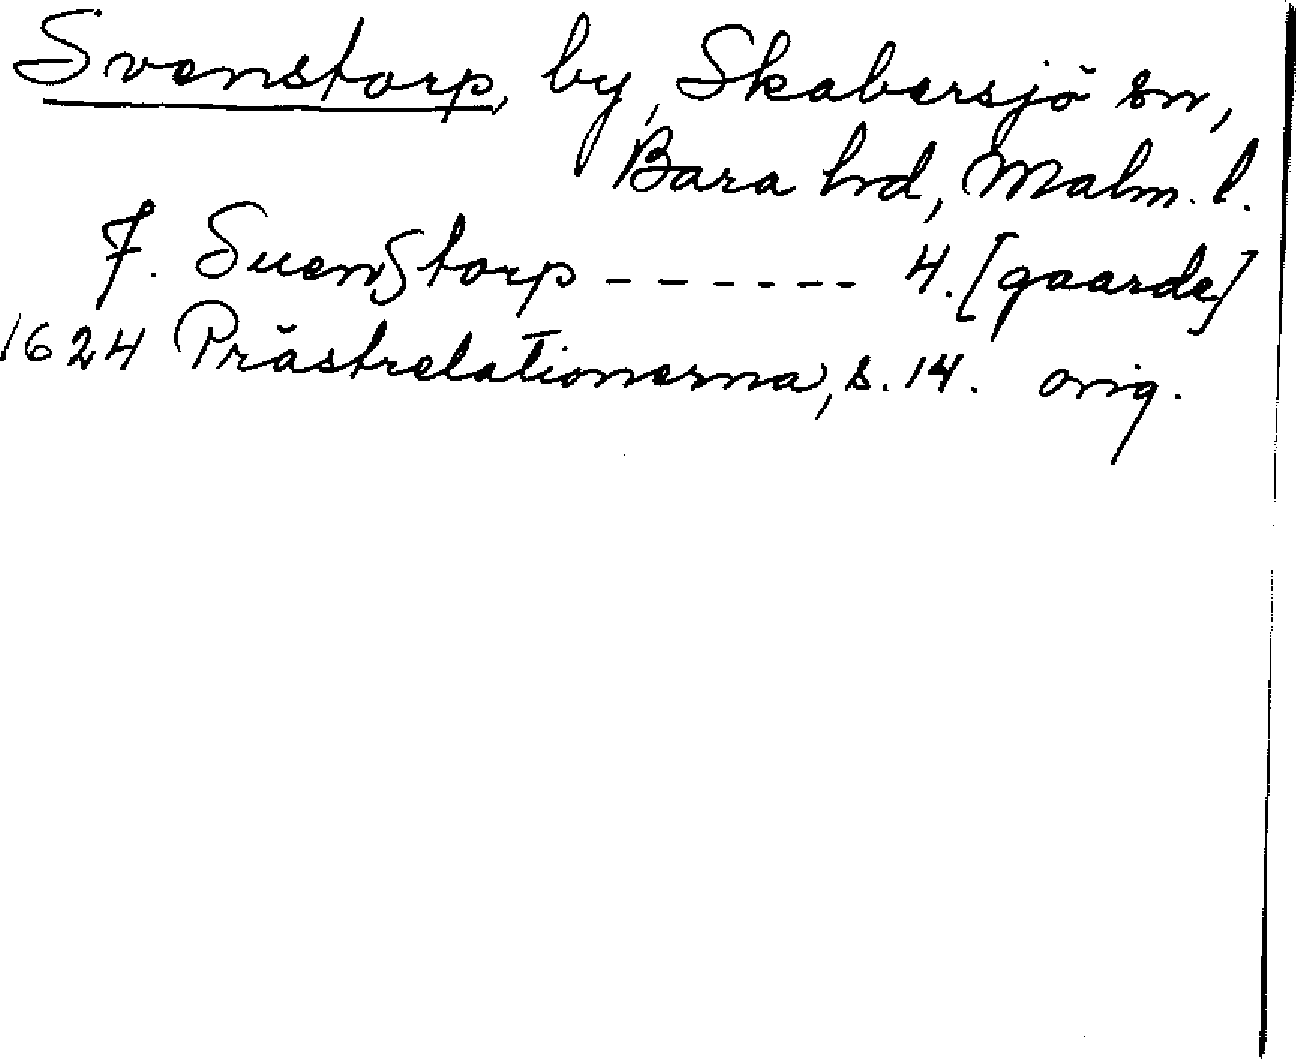 Svenstorp, by, Skabersjö sn,
Bara hd, Malm. l.
7. SuenStorp ------ 4. [gaarde]
1624 Prästrelationerna, s. 14. orig.